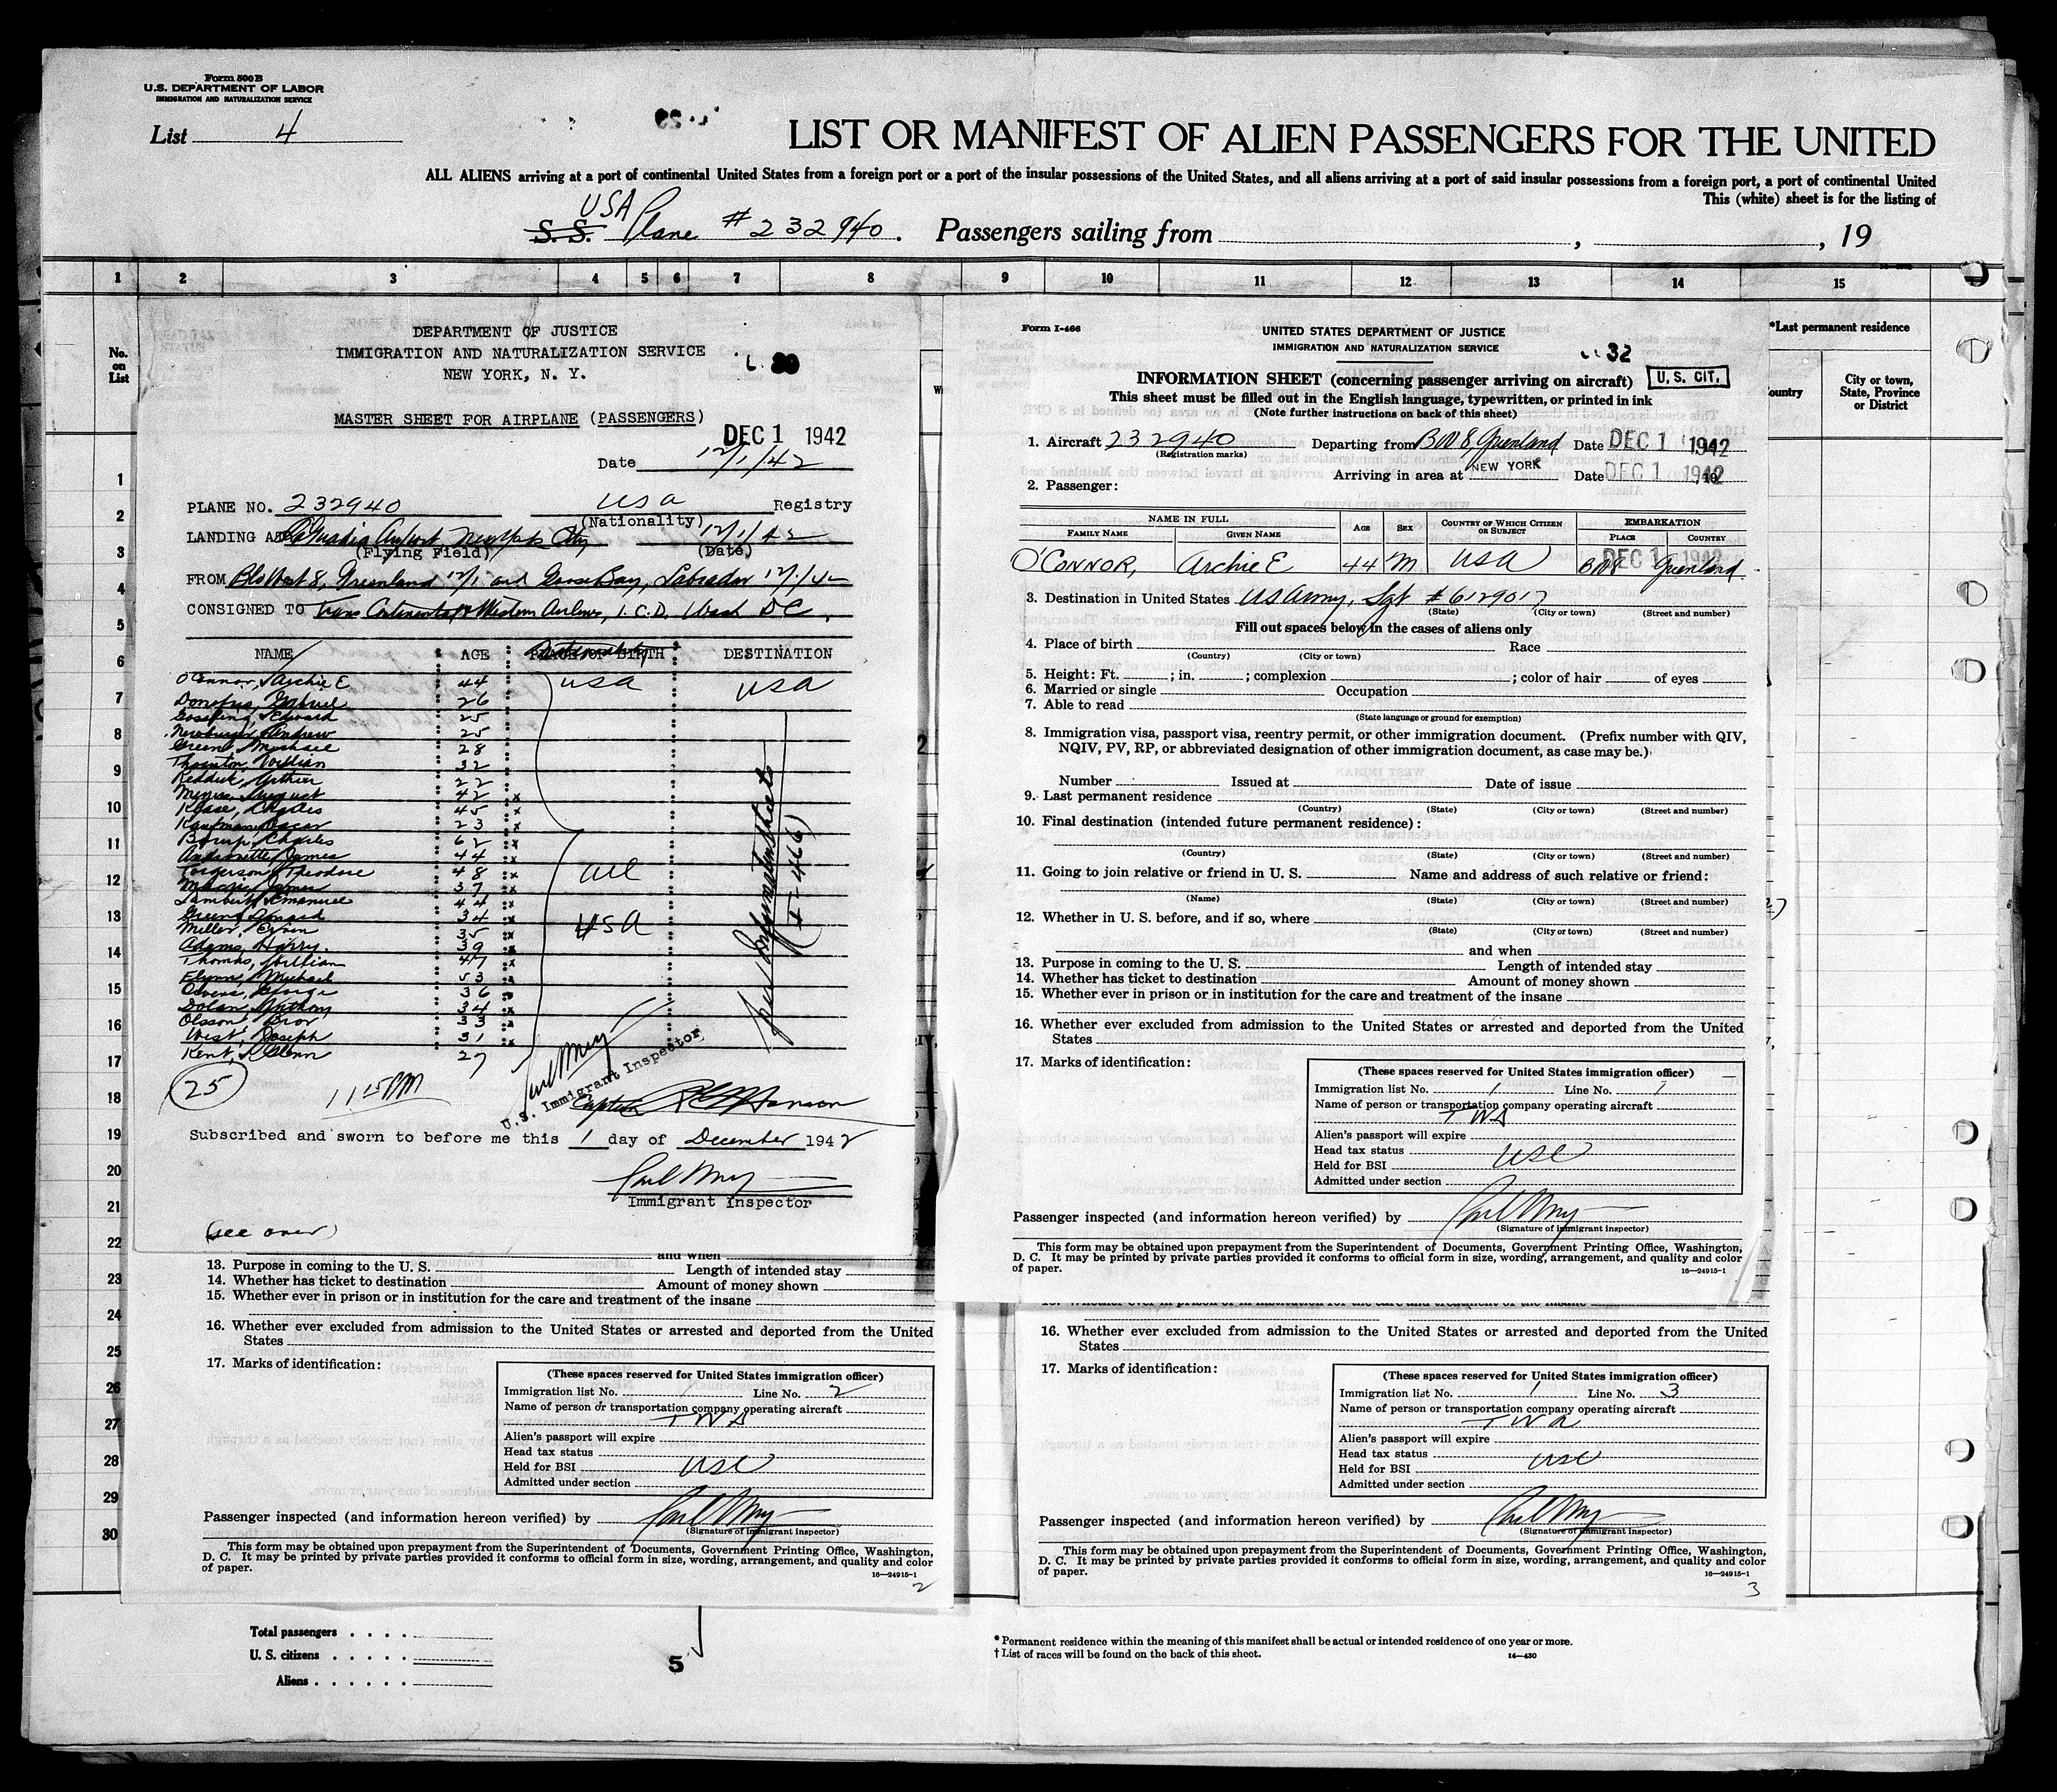 Form 500 B
U.S. DEPARTMENT OF LABOR
IMMIGRATION AND NATURALIZATION SERVICE
List 4
LIST OR MANIFEST OF ALIEN PASSENGERS FOR THE UNITED
ALL ALIENS arriving at a port of continental United States from a foreign port or a port of the insular possessions of the United States, and all aliens arriving at a port of said insular possessions from a foreign port, a port of continental United
This (white) sheet is for the listing of
USA
S. S. Plane #232940. Passengers sailing from , , 19
1 2 3 4 5 6 7 8 9 10 11 12 13 14 15
No. on List
1
2
3
4
5
6
7
8
9
10
11
12
13
14
15
16
17
18
19
20
21
22
23
24
25
26
27
28
29
30
DEPARTMENT OF JUSTICE
IMMIGRATION AND NATURALIZATION SERVICE
NEW YORK, N. Y.
MASTER SHEET FOR AIRPLANE (PASSENGERS)
DEC 1 1942
Date 12/1/42
PLANE NO. 232940 USA Registry
(Nationality)
LANDING AT LaGuardia Airport, New York City 12/1/42
(Flying Field) (Date)
FROM Blo West 8, Greenland 12/1 and Goose Bay, Labrador 12/1/42
CONSIGNED TO Trans Continental & Western Airlines, I.C.D. Wash DC,
NAME AGE PLACE OF BIRTH DESTINATION
O'Connor, Archie E 44 USA USA
Donofrio, Gabriel 26
Gosseling, Edward 25
Newburger, Andrew 25
Greene, Michael 28
Thornton, William 32
Reddick, Arthur 22
August 42 x
Charles 45 x
Kaufman, Oscar 23 x
Charles 62 x
James 44 x
Torgerson, Theodore 48 x
James 37 x
Lambert, Emanuel 44 x
Greene, 34 x
Miller, 35 x
Adams, Harry. 39 x
Thomas, William 47 x
Flynn, Michael 53 x
Owens, George 36 x
Dolan, Anthony 34 x
Olsson, Bror 33 x
West, Joseph 31 x
Kent, Glenn 27
all
USA
per Information Sheets
(I-466)
25
11 25 PM
U.S. Immigrant Inspector
Captain Hanson
Subscribed and sworn to before me this 1 day of December 1942
Immigrant Inspector
(see over)
and when
13. Purpose in coming to the U. S. Length of intended stay
14. Whether has ticket to destination Amount of money shown
15. Whether ever in prison or in institution for the care and treatment of the insane
16. Whether ever excluded from admission to the United States or arrested and deported from the United
States
17. Marks of identification:
(These spaces reserved for United States immigration officer)
Immigration list No. 1 Line No. 2
Name of person or transportation company operating aircraft
TWA
Alien's passport will expire
Head tax status
Held for BSI USC
Admitted under section
Passenger inspected (and information hereon verified) by
(Signature of immigrant inspector)
This form may be obtained upon prepayment from the Superintendent of Documents, Government Printing Office, Washington,
D. C. It may be printed by private parties provided it conforms to official form in size, wording, arrangement, and quality and color
of paper.
16—24915-1
2
Form I-466
UNITED STATES DEPARTMENT OF JUSTICE
IMMIGRATION AND NATURALIZATION SERVICE
32
INFORMATION SHEET (concerning passenger arriving on aircraft) U. S. CIT.
This sheet must be filled out in the English language, typewritten, or printed in ink
(Note further instructions on back of this sheet)
1. Aircraft 232940 Departing from BW8, Greenland Date DEC 1 1942
(Registration marks)
Arriving in area at NEW YORK Date DEC 1 1942
2. Passenger:
NAME IN FULL AGE SEX COUNTRY OF WHICH CITIZEN OR SUBJECT EMBARKATION
FAMILY NAME GIVEN NAME PLACE COUNTRY
DEC 1 1942
O'CONNOR, Archie E 44 M USA BW8 Greenland.
3. Destination in United States US Army, Sgt #6129017
(State) (City or town) (Street and number)
Fill out spaces below in the cases of aliens only
4. Place of birth Race
(Country) (City or town)
5. Height: Ft. ; in. ; complexion ; color of hair of eyes
6. Married or single Occupation
7. Able to read
(State language or ground for exemption)
8. Immigration visa, passport visa, reentry permit, or other immigration document. (Prefix number with QIV,
NQIV, PV, RP, or abbreviated designation of other immigration document, as case may be.)
Number Issued at Date of issue
9. Last permanent residence
(Country) (State) (City or town) (Street and number)
10. Final destination (intended future permanent residence):
(Country) (State) (City or town) (Street and number)
11. Going to join relative or friend in U. S. Name and address of such relative or friend:
(Name) (State) (City or town) (Street and number)
12. Whether in U. S. before, and if so, where
(State) (City or town) (Street and number)
and when
13. Purpose in coming to the U. S. Length of intended stay
14. Whether has ticket to destination Amount of money shown
15. Whether ever in prison or in institution for the care and treatment of the insane
16. Whether ever excluded from admission to the United States or arrested and deported from the United
States
17. Marks of identification:
(These spaces reserved for United States immigration officer)
Immigration list No. 1 Line No. 1
Name of person or transportation company operating aircraft
TWA
Alien's passport will expire
Head tax status USC
Held for BSI
Admitted under section
Passenger inspected (and information hereon verified) by
(Signature of immigrant inspector)
This form may be obtained upon prepayment from the Superintendent of Documents, Government Printing Office, Washington,
D. C. It may be printed by private parties provided it conforms to official form in size, wording, arrangement, and quality and color
of paper.
16—24915-1
16. Whether ever excluded from admission to the United States or arrested and deported from the United
States
17. Marks of identification:
(These spaces reserved for United States immigration officer)
Immigration list No. 1 Line No. 3
Name of person or transportation company operating aircraft
TWA
Alien's passport will expire
Head tax status
Held for BSI USC
Admitted under section
Passenger inspected (and information hereon verified) by
(Signature of immigrant inspector)
This form may be obtained upon prepayment from the Superintendent of Documents, Government Printing Office, Washington,
D. C. It may be printed by private parties provided it conforms to official form in size, wording, arrangement, and quality and color
of paper.
16—24915-1
3
*Last permanent residence
ountry
City or town, State, Province or District
Total passengers
U. S. citizens
Aliens
5
* Permanent residence within the meaning of this manifest shall be actual or intended residence of one year or more.
† List of races will be found on the back of this sheet.
14—430